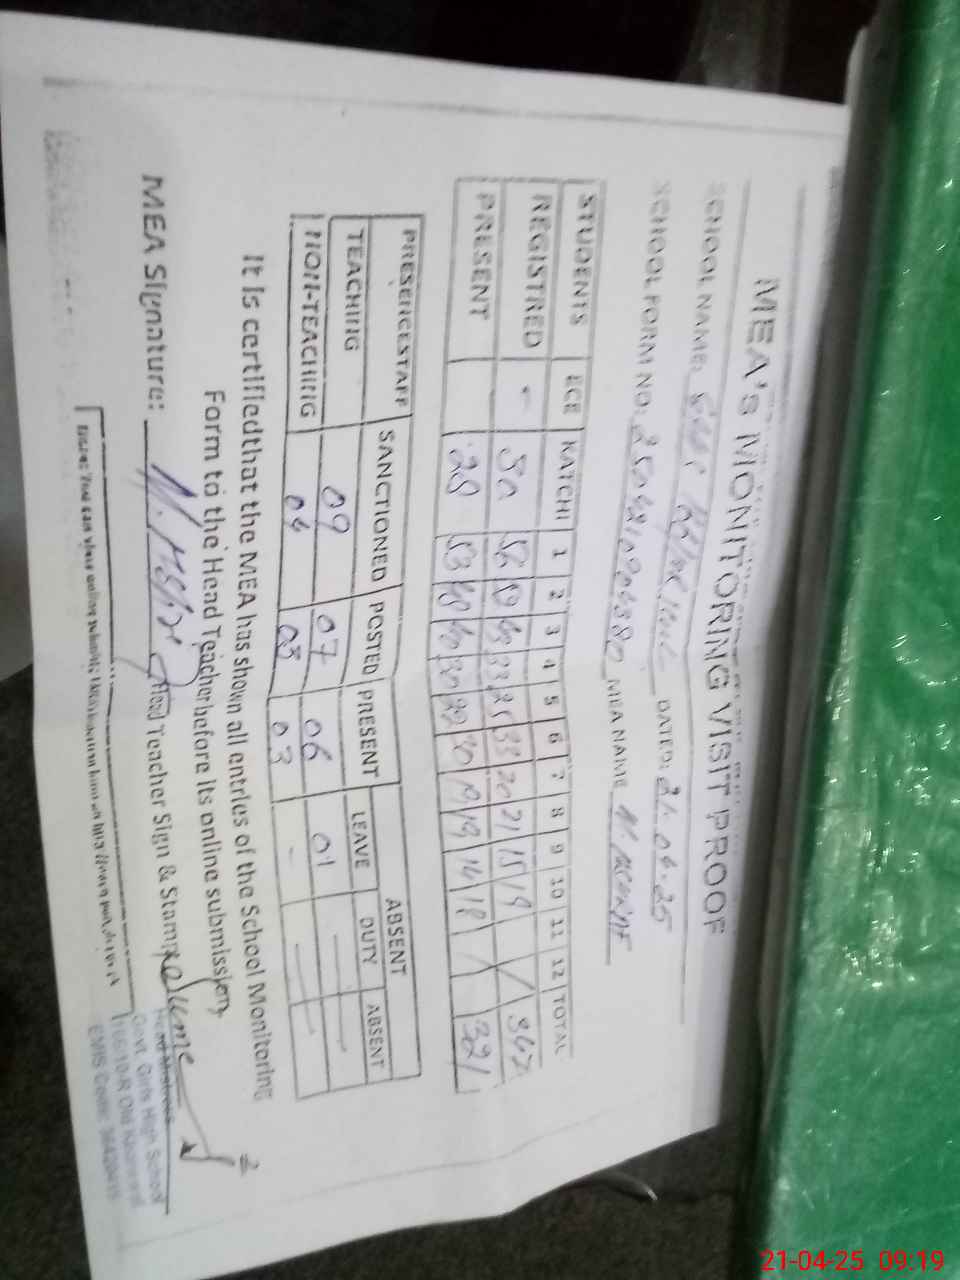 MEA'S MONITORING VISIT PROOF
SCHOOL NAME: DATED: 21.04.25
SCHOOL FORM NO: MEA NAME
STUDENTS ECE KATCHI 1 2 3 4 5 6 7 8 9 10 11 12 TOTAL
REGISTRED - 30 56 33 25 33 20 21 15 19 / 347
PRESENT 28 53 48 40 30 22 30 19 19 14 18 / 321
PRESENCESTAFF SANCTIONED POSTED PRESENT ABSENT
LEAVE DUTY ABSENT
TEACHING 09 07 06 01 — —
NON-TEACHING 04 03 03 - — —
It is certifiedthat the MEA has shown all entries of the School Monitoring
Form to the Head Teacherbefore its online submission
MEA Signature: Head Teacher Sign & Stamp
Head Mistress
Govt. Girls High School
EMIS Code:
21-04-25 09:19